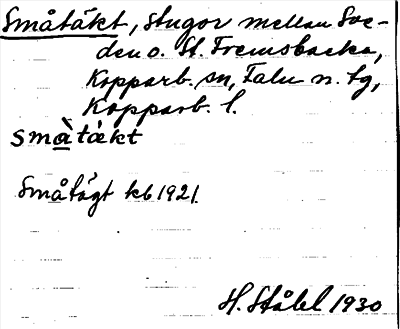 Småtäkt, stugor mellan Sve-
den o. St. Fremsbacka,
Kopparb. sn, Falu n. tg,
Kopparb. l.
småtäkt
Småtägt kb 1921.
H. Ståhl 1930